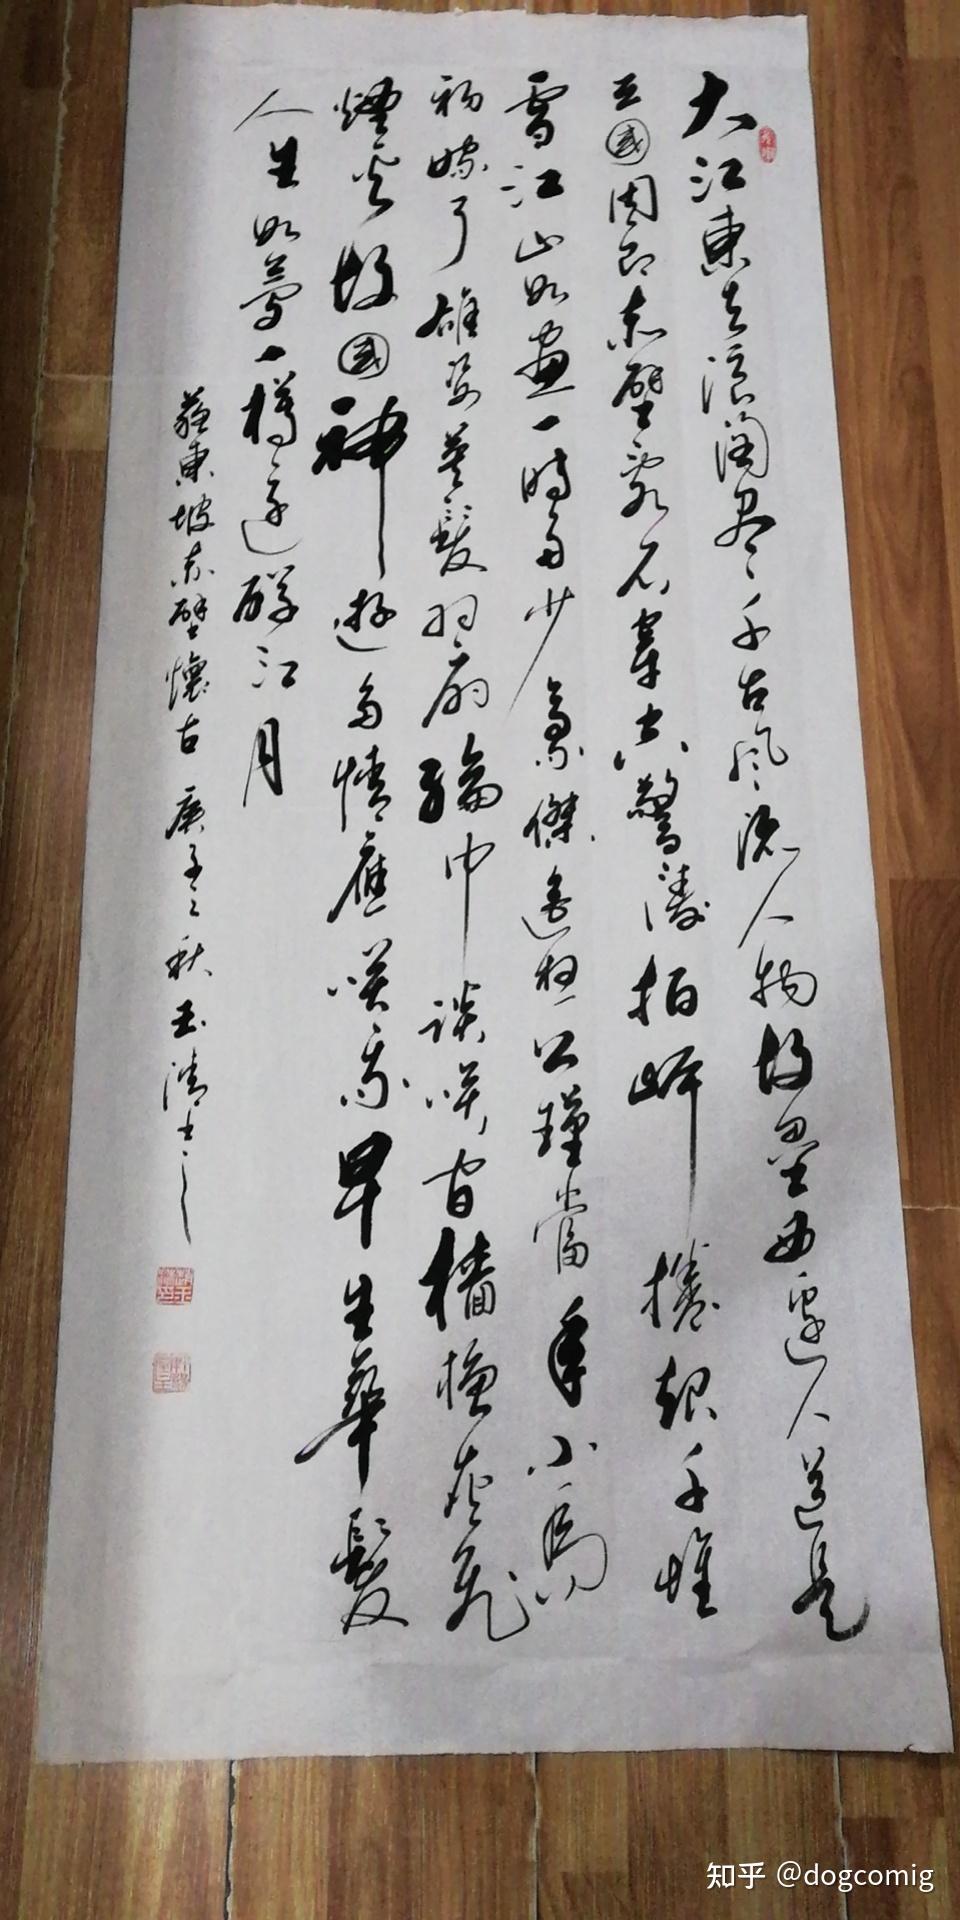 大江東去浪淘盡千古風流人物故壘西邊人道是
三國周郎赤壁亂石穿空驚濤拍岸捲起千堆
雪江山如畫一時多少豪傑遙想公瑾當年小喬
初嫁了雄姿英發羽扇綸巾談笑間檣櫓灰飛
煙滅故國神遊多情應笑我早生華髮
人生如夢一樽還酹江月
蘇東坡赤壁懷古 庚子秋
知乎 @dogcomig